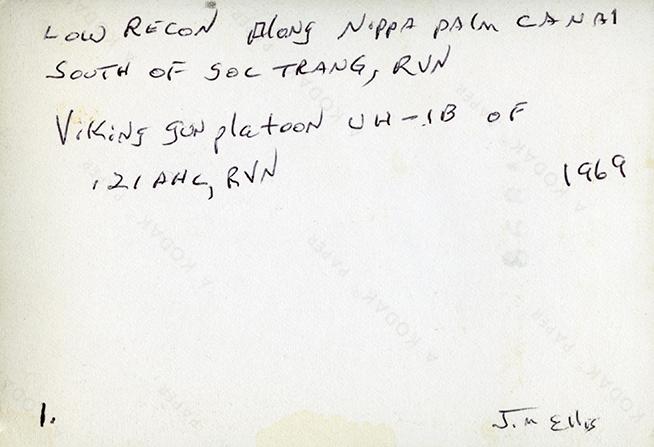 LOW RECON Along NIPPA PALM CANAL
SOUTH OF SOC TRANG, RVN
VIKING GUN platoon UH-1B OF
121 AHC, RVN
1969
A KODAK PAPER
A KODAK PAPER
A KODAK PAPER
1.
Jim Ellis